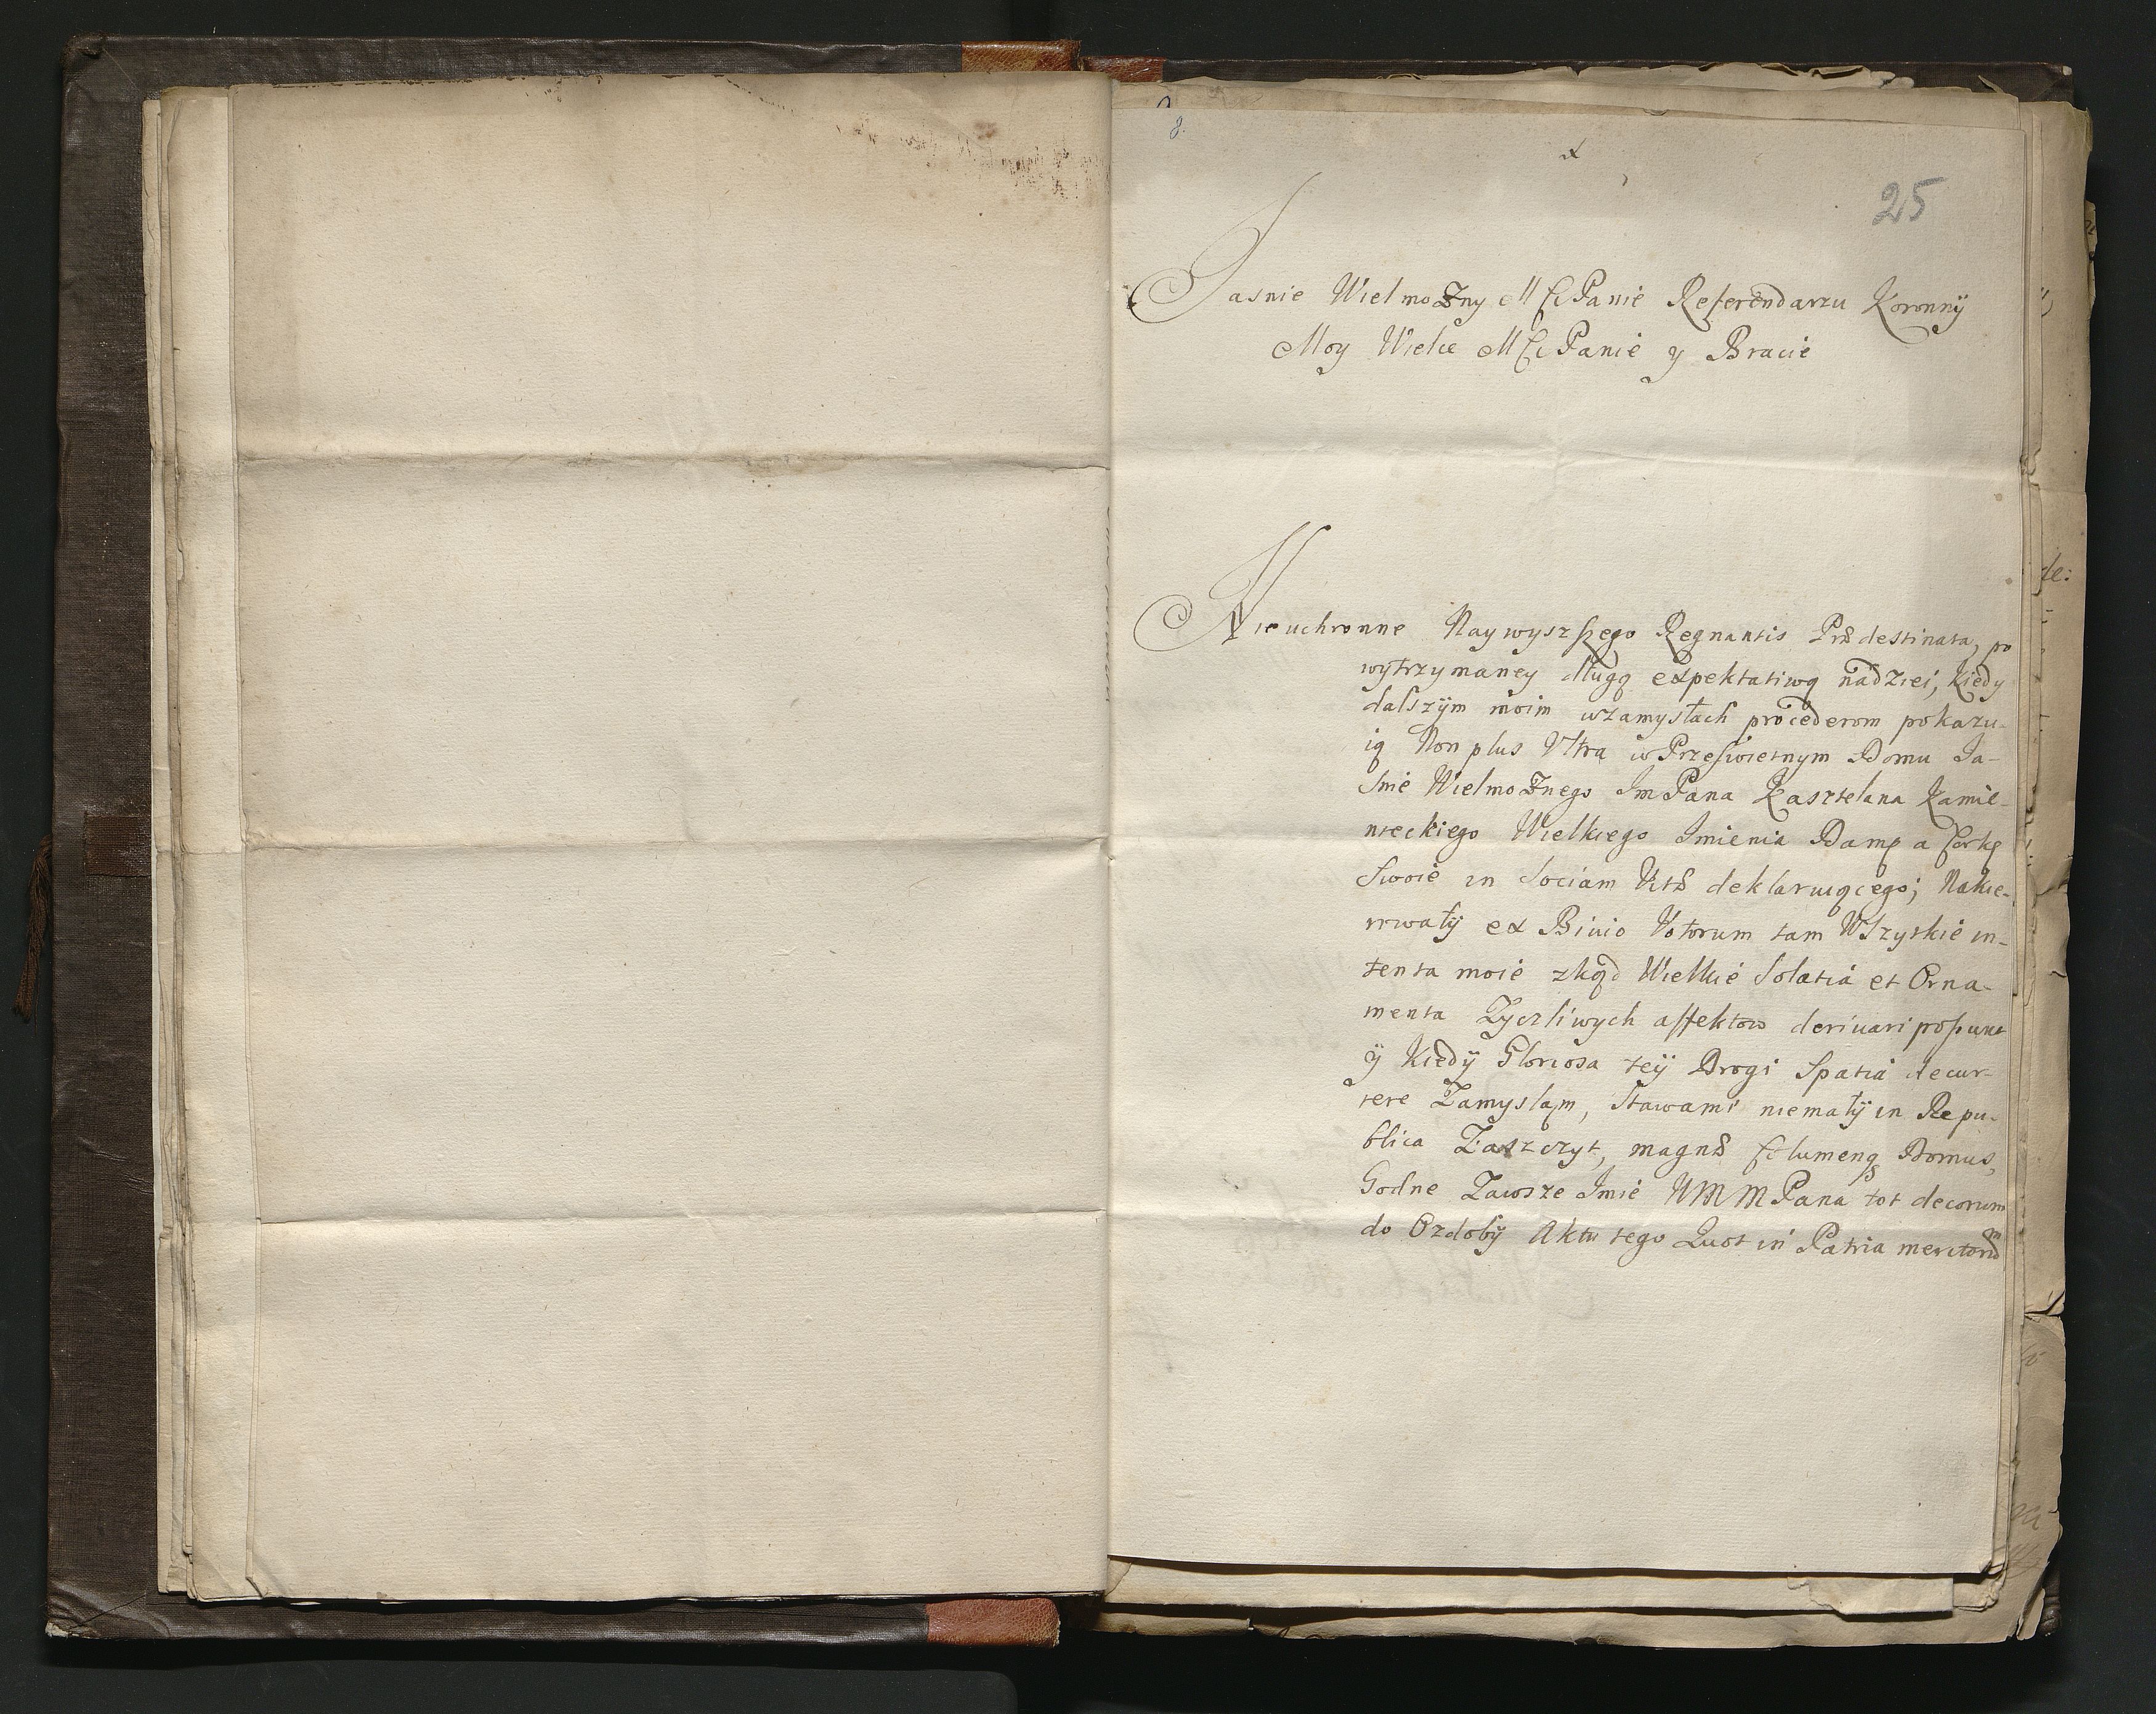 8.
25
Jasnie Wielmożny MSCPanie Referendarzu Koronnÿ
Moy Wielce MSCPanie y Bracie
Nieuchronne Naywyszszego Regnantis Prædestinata, po
wytrzymaney długą expektatiwą nadziei, kiedy
dalszÿm moim wzamysłach procederom pokazu-
ią Non plus Vltra w Przeswietnym Domu Ja-
snie Wielmożnego Jm Pana Kasztelana Kamie-
nieckiego Wielkiego Imienia Damę a Corkę
Swoię in Sociam Vitæ deklaruiącego; Nakie-
rowałÿ ex Biuio Votorum tam Wszytkie in-
tenta moie zkąd Wielkie Solatia et Orna-
menta Zyczliwych affektow deriuari possunt
ÿ Kiedÿ Gloriosa teÿ Drogi Spatia decur-
rere Zamyslam, Stawami niemałÿ in Repu-
blica Zaszczyt, magnæ Columenq Domus,
Godne Zawsze Imie WMMPana tot decorum
do Ozdobÿ Aktu tego Quot in Patria meritorum